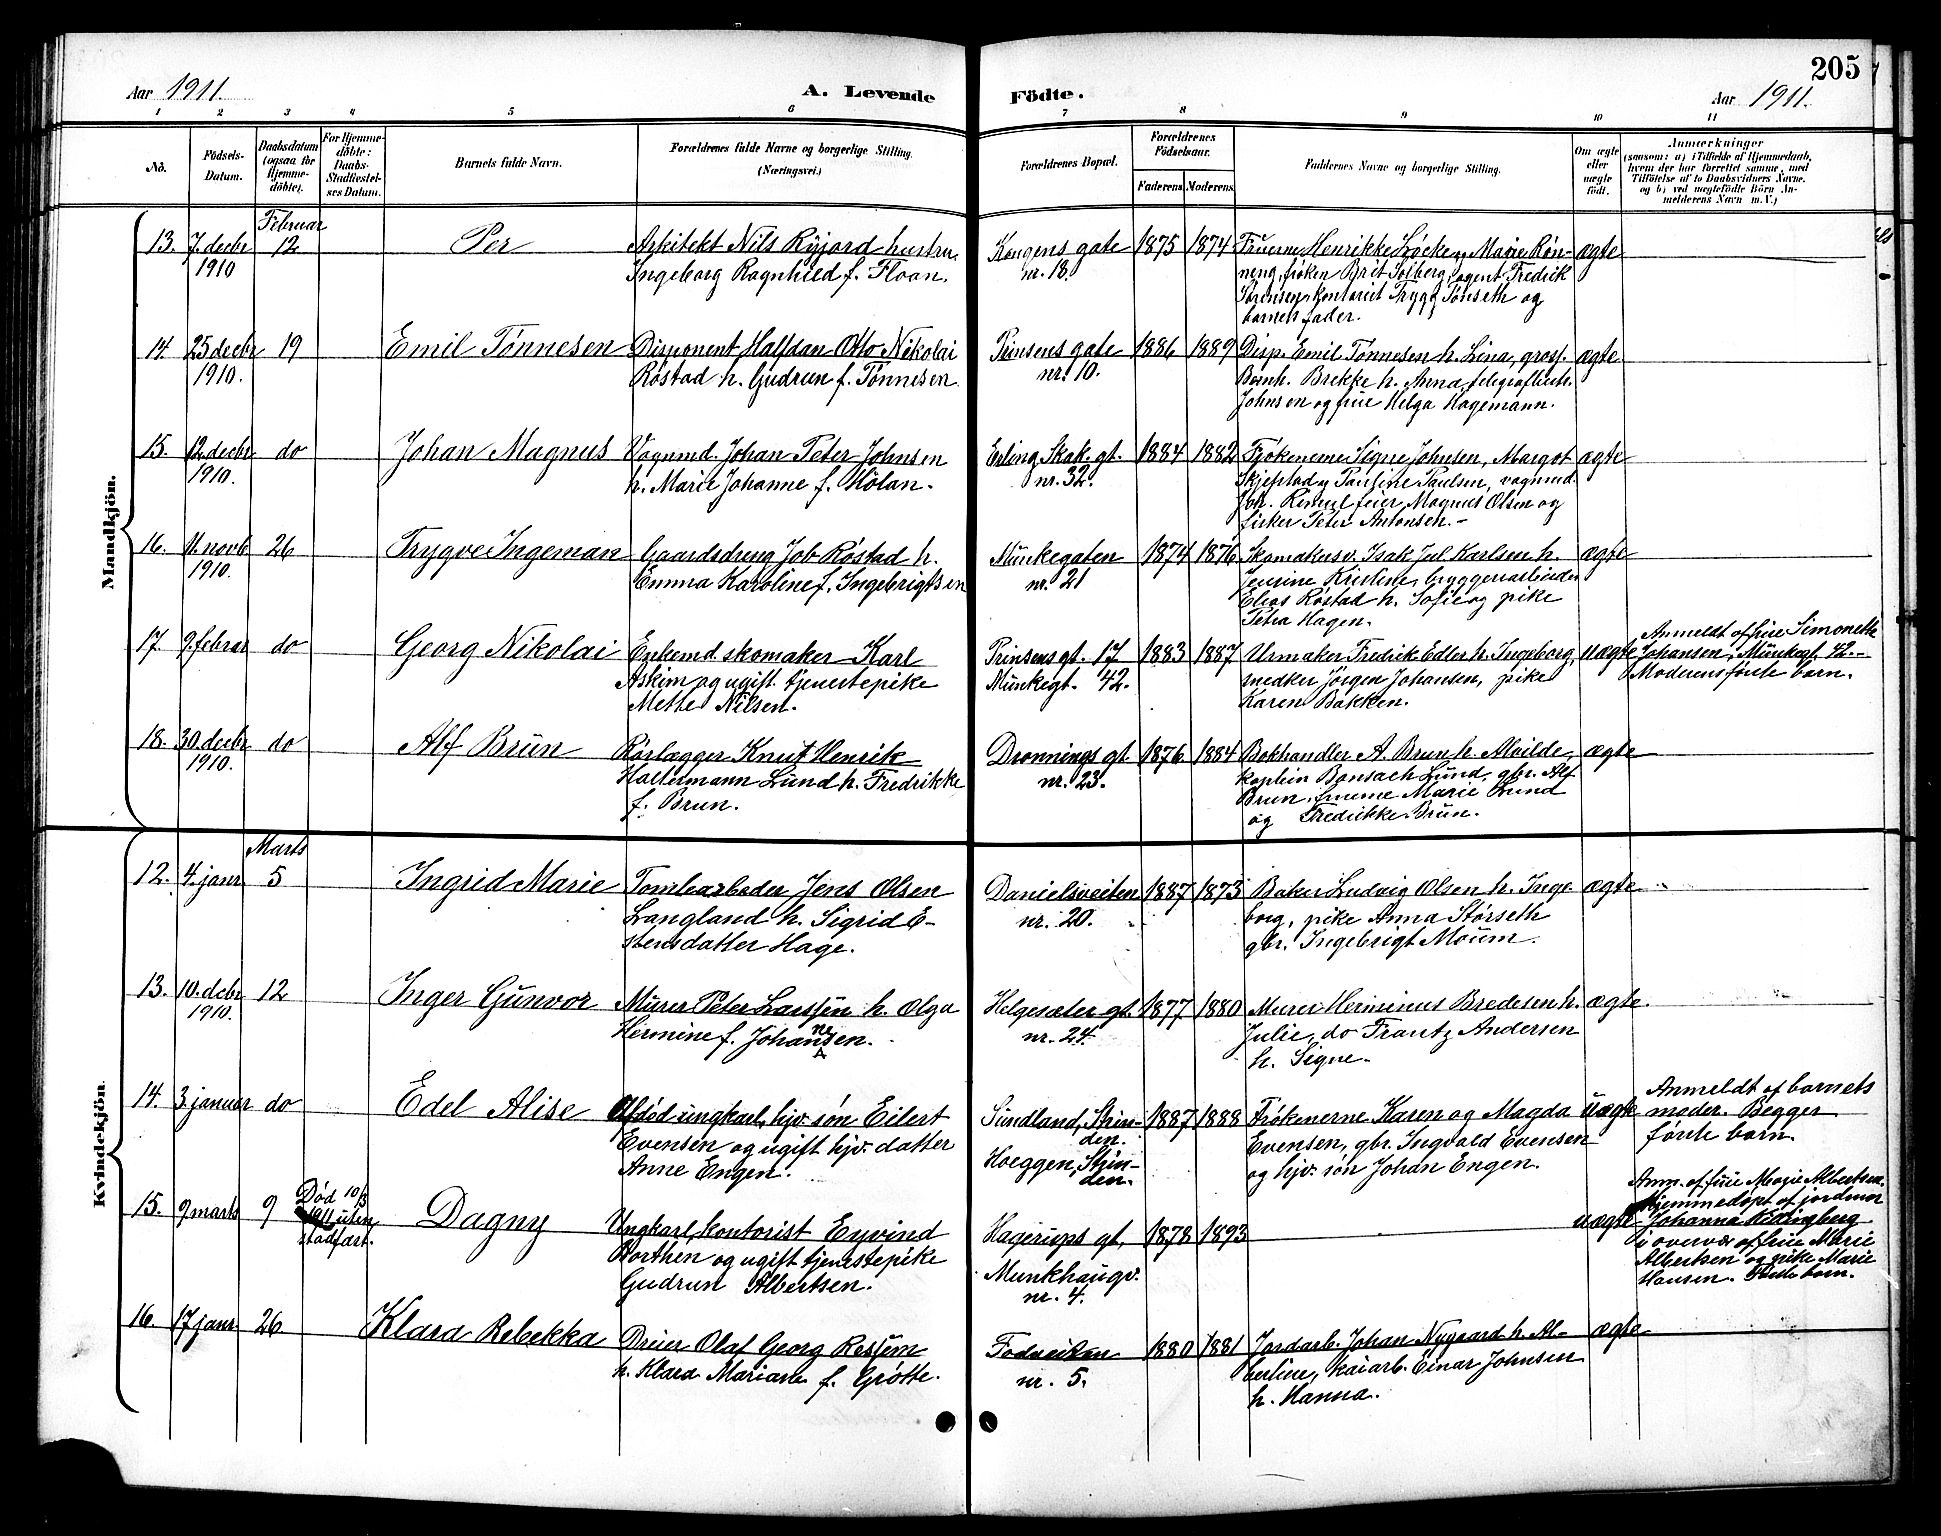 205
Aar 1911.
A. Levende Födte.
Aar 1911.
1 2 3 4 5 6 7 8 9 10 11
No.
Födsels-
Datum.
Daabsdatum
(ogsaa for
Hjemme-
döbte).
For Hjemme-
döbte:
Daabs-
Stadfæstel-
ses Datum.
Barnets fulde Navn.
Forældrenes fulde Navne og borgerlige Stilling.
(Næringsvei.)
Forældrenes Bopæl.
Forældrenes
Födselsaar.
Faderens. Moderens.
Faddernes Navne og borgerlige Stilling.
Om ægte
eller
uægte
født.
Anmærkninger
(saasom: a) i Tilfælde af Hjemmedaab,
hvem der har forrettet samme, med
Tilföielse af to Daabsvidners Navne,
og b) ved uægtefödte Börn An-
melderens Navn m. V.)
Mandkjön.
Februar
13. 7. decbr 12 Per Arkitekt Nils Ryjord hustru Kongens gate 1875 1874 Fruerne Henrikke Löcke og Marie Røn- ægte
1910 Ingeborg Ragnhild f. Floan. nr. 18. ning, frøken Brit Solberg, agent Fredrik
Sørensen, kontorist Trygg Tønseth og
barnets fader.
14. 25 decbr 19 Emil Tønnesen Disponent Halfdan Otto Nikolai Prinsens gate 1886 1889 Disp. Emil Tønnesen h. Lina, gross. ægte
1910. Røstad h. Gudrun f. Tønnesen nr. 10. Bernh. Brekke h. Anna, telegrafbest.
Johnsen og frue Helga Hagemann.
15. 12 decbr do Johan Magnus Vognmd. Johan Peter Johnsen Erling Skak. gt. 1884 1882 Frøkenerne Signe Johnsen, Margot ægte
1910. h. Marie Johanne f. Hölan. nr. 32. Skjefstad og Pauline Paulsen, vognmd.
Joh. Rimul feier Magnus Olsen og
Peter Antonsen.-
16. 11. novb 26 Trygve Ingeman Gaardsdreng Job Røstad h. Munkegaten 1874 1876 Skomakersv. Isak Jul. Karlsen h. ægte
1910. Emma Karoline f. Ingebrigtsen nr. 21 Jensine Kristine, bryggeriarbeider
Elias Røstad h. Sofie og pike
Petra Hagen.
17. 9. februar do Georg Nikolai Enkemd. skomaker Karl Prinsens gt. 17 1883 1887 Urmaker Fredrik Edler h. Ingeborg, uægte Anmeldt af frue Simonette
Askim og ugift tjenestepike Munkegt. 42. snedker Jörgen Johansen, pike Johansen, Munkegt. 42.-
Mette Nilsen. Karen Bakken. Moderens förste barn.
18. 30 decbr do Alf Brun Rørlægger Knut Henrik Dronnings gt. 1876 1884 Bokhandler A. Brun h. Alvilde, ægte
1910. Holtermann Lund h. Fredrikke nr. 23. kaptein Bonsach Lund, gbr. Alf
f. Brun. Brun, fruerne Marie Lund
og Fredrikke Brun.
Kvindekjön.
Marts
12. 4. janr 5 Ingrid Marie Tomtearbeder Jens Olsen Danielsveiten 1887 1873 Baker Ludvig Olsen h. Inge- ægte
Langland h. Sigrid E- nr. 20. borg, pike Anna Störseth
stensdatter Hage. gbr. Ingebrigt Moum.
13. 10. decbr 12 Inger Gunvor Murer Peter Larssen h. Olga Helgesæter gt. 1877 1880 Murer Herminus Bredesen h. ægte
1910. Hermine f. Johannesen. nr. 24. Julie, do Frantz Andersen
h. Signe.
14. 3 januar do Edel Alise Afdød ungkarl, hjv. søn Eilert Sundland, Strin- 1887 1888 Frøkenerne Karen og Magda uægte Anmeldt af barnets
Evensen og ugift hjv. datter den. Evensen, gbr. Ingvald Evensen moder. Begges
Anne Engen. Hoeggen, Strin- og hjv. søn Johan Engen. förste barn.
den.
15. 9 marts 9 Død 10/3 Dagny Ungkarl, kontorist Eyvind Hagerups gt, 1878 1893 uægte Anm. af frue Marie Albertsen.
1911 uten Dorthen og ugift tjenestepike Munkhaugv. Hjemmedøpt af jordmor
stadfæst. Gudrun Albertsen. nr. 4. Johanna
i overvær af frue Marie
Albertsen og pike Marie
Hansen. Første barn.
16. 17 janr 26 Klara Rebekka Dreier Olaf Georg Ressem Fodveiten 1880 1881 Jordarb. Johan Nygaard h. Al- ægte
h. Klara Mariane f. Grötte. nr. 5. bertine, kaiarb. Einar Johnsen
h. Hanna.